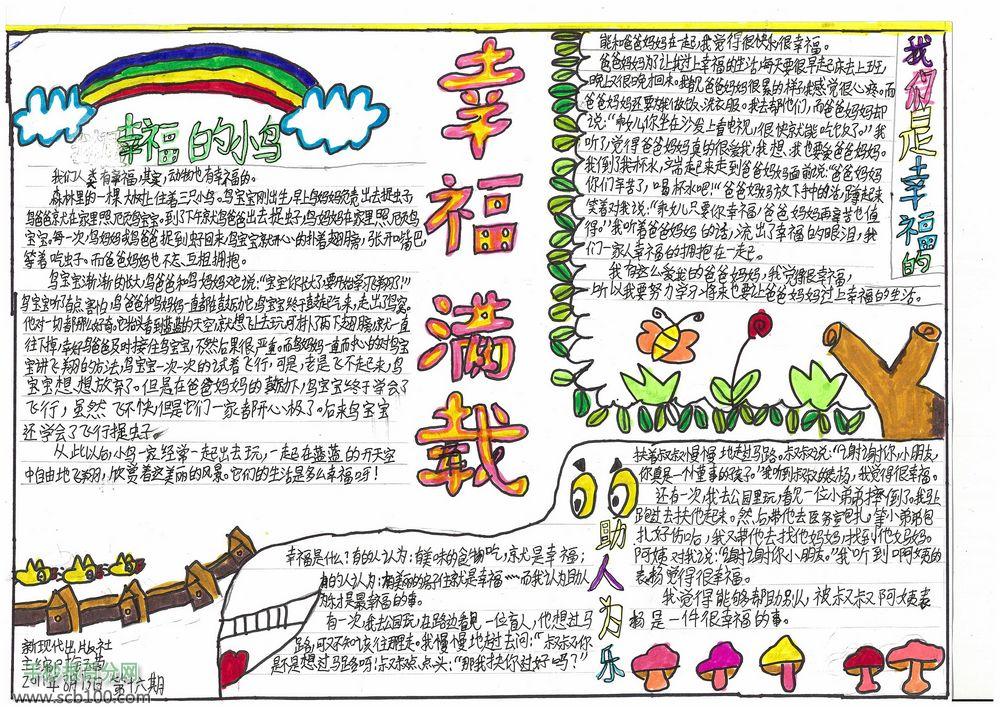 幸福的小鸟
我们人类有幸福,其实,动物也有幸福的。
森林里的一棵大树上住着三只小鸟。鸟宝宝刚出生,早上鸟妈妈就急着出去捉虫子,
鸟爸爸就在家里照顾鸟宝宝。到了下午就鸟爸爸出去捉虫子,鸟妈妈在家里照顾鸟
宝宝。每一次,鸟妈妈或鸟爸爸捉到虫子回来,鸟宝宝就开心的扑着翅膀,张开嘴巴,
等着吃虫子。而爸爸妈妈也不忘互相拥抱。
鸟宝宝渐渐的长大,鸟爸爸和鸟妈妈对它说:“宝宝你长大了要开始学习飞翔了!”
鸟宝宝听了有点害怕,鸟爸爸和鸟妈妈一直都在鼓励它,鸟宝宝终于鼓起勇气来,走出了鸟窝。
他对一切都那么好奇。它抬头看到蓝蓝的天空,就想飞上去玩,可扑了两下翅膀就一直
往下掉,幸好鸟爸爸及时接住鸟宝宝,不然后果很严重。而鸟妈妈一直耐心的对鸟宝
宝讲飞翔的方法,鸟宝宝一次一次的试着飞行,可是,老是飞不起来,鸟
宝宝想,想放弃了。但是在爸爸妈妈的鼓励下,鸟宝宝终于学会了
飞行,虽然飞不快,但是它们一家都开心极了。后来鸟宝宝
还学会了飞行捉虫子。
从此以后,小鸟一家经常一起出去玩,一起在蓝蓝的天空
中自由地飞翔,欣赏着这美丽的风景。它们的生活是多么幸福呀!
幸福满载
我们是幸福的
能和爸爸妈妈在一起,我觉得很快乐很幸福。
爸爸妈妈为了让我过上幸福的生活,每天要很早起床去上班,
晚上又很晚回来。我见爸爸妈妈很累的样子就感觉很心疼。而
爸爸妈妈还要做饭、洗衣服。我去帮他们,而爸爸妈妈却
说:“乖女儿你坐在沙发上看电视,很快就能吃饭了。”我
听了,觉得爸爸妈妈真的很爱我,我想,我也要爱爸爸妈妈。
我倒了杯水,端起来走到爸爸妈妈面前说:“爸爸妈妈
你们辛苦了,喝杯水吧!”爸爸妈妈放下手中的活,蹲起来
笑着对我说:“乖女儿只要你幸福,爸爸妈妈再辛苦也值
得。”我听着爸爸妈妈的话,流出了幸福的眼泪,我
们一家人幸福的拥抱在一起。
我有这么爱我的爸爸妈妈,我觉得很幸福,
所以我要努力学习,将来也要让爸爸妈妈过上幸福的生活。
助人为乐
幸福是什么?有的人认为:有美味的食物吃,就是幸福;
有的人认为:有美丽的房子住就是幸福……而我认为助人
为乐才是最幸福的事。
有一次,我去公园玩,在路边看见一位盲人,他想过马
路,可又不知该往哪走。我慢慢地走过去问:“叔叔你
是不是想过马路吗?叔叔点点头:“那我扶你过好吗?”
扶着叔叔慢慢地走过马路。叔叔说:“谢谢你,小朋友,
你真是一个懂事的孩子。”我听到叔叔的表扬,我觉得很幸福。
还有一次,我去公园里玩,看见一位小弟弟摔倒了。我马上
跑过去扶他起来。然后带他去医务室包扎,等小弟弟包
扎好伤后,我又带他去找他妈妈,找到他妈妈。
阿姨对我说:“谢谢你小朋友。”我听到阿姨的
表扬觉得很幸福。
我觉得能够帮助别人,被叔叔阿姨表
扬是一件很幸福的事。
新现代出版社
第十六期
www.scb100.com